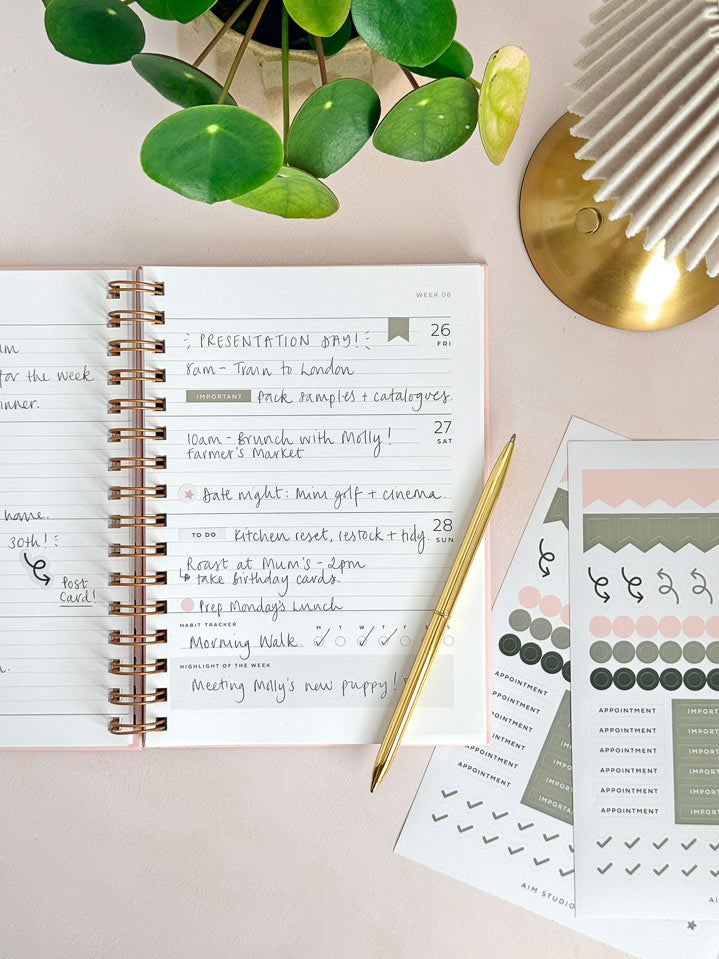 for the week
home.
30th!
Post
Card!
WEEK 08
PRESENTATION DAY! 26
FRI
8am - Train to London
IMPORTANT Pack samples + catalogues.
27
SAT
10am - Brunch with Molly!
Farmer's Market
Date night: Mini golf + cinema.
28
SUN
TO DO Kitchen reset, restock + tidy.
Roast at Mum's - 2pm
take birthday cards.
Prep Monday's Lunch
HABIT TRACKER M T W T F S S
Morning Walk
HIGHLIGHT OF THE WEEK
Meeting Molly's new puppy!
APPOINTMENT
APPOINTMENT
APPOINTMENT
APPOINTMENT
APPOINTMENT
IMPORTANT
AIM STUDIO
APPOINTMENT IMPORT
APPOINTMENT IMPORT
APPOINTMENT IMPORT
APPOINTMENT IMPORT
APPOINTMENT IMPORT
APPOINTMENT IMPORT